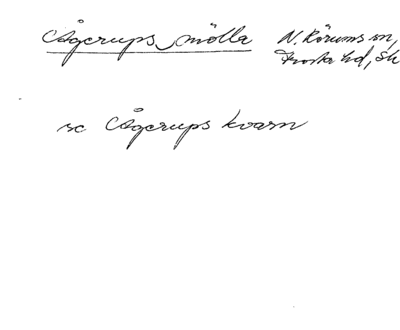 Ågerups mölla N. Rörums sn,
Frosta hd, Sk
se Ågerups kvarn